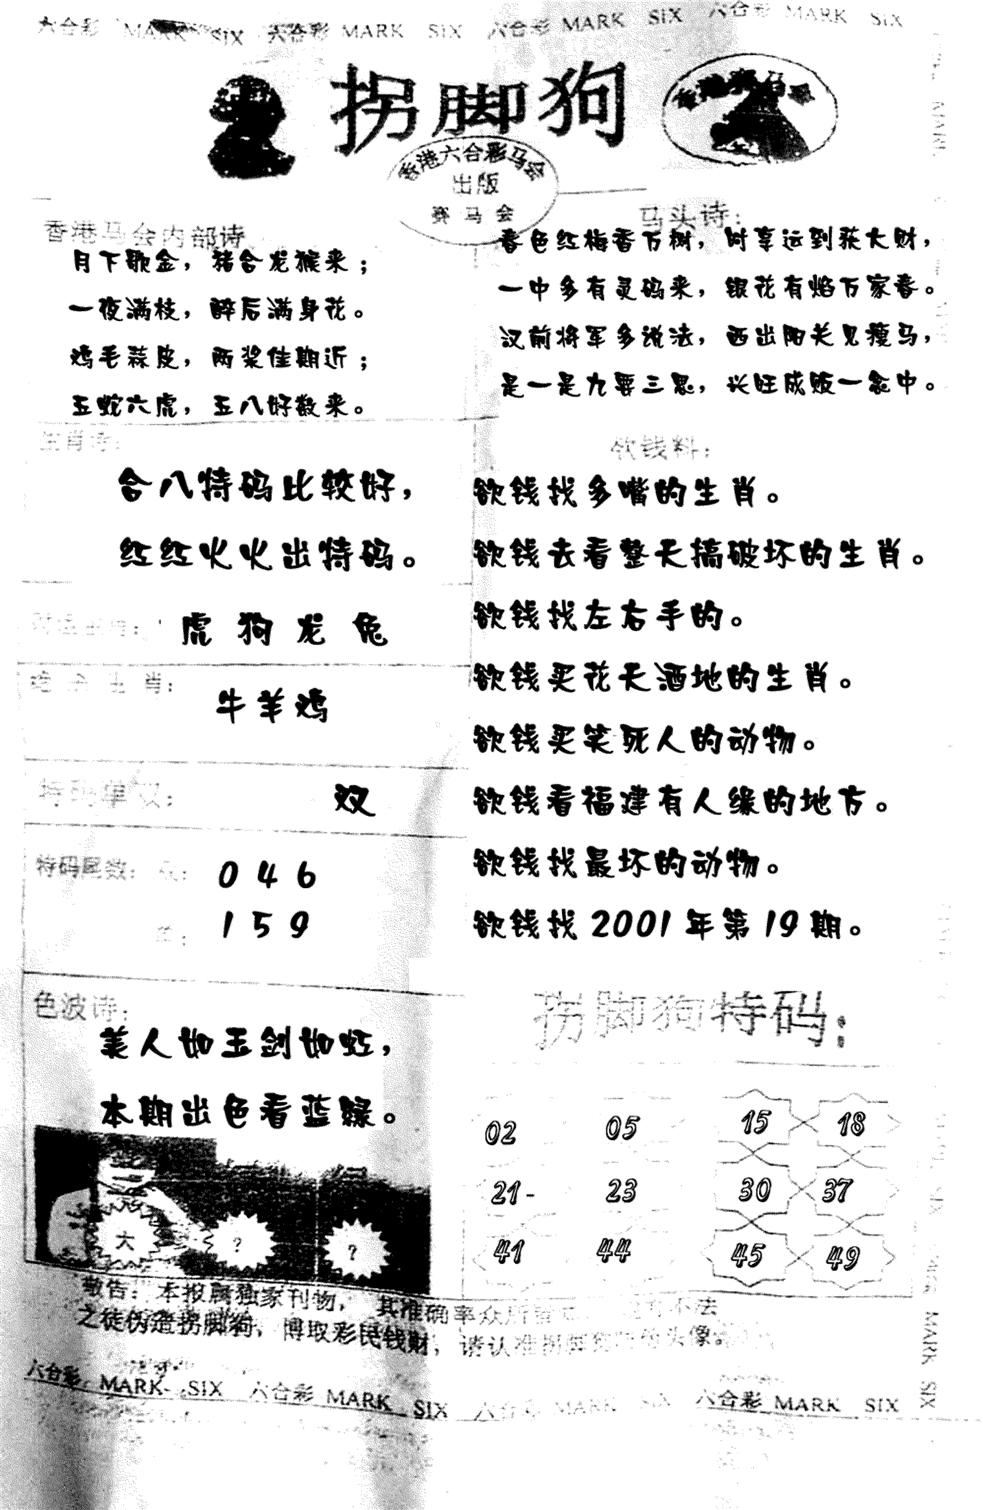 六合彩 MARK SIX 六合彩 MARK SIX 六合彩 MARK SIX 六合彩 MARK SIX
拐脚狗
香港赛马会
香港六合彩马会
出版
赛马会
香港马会内部诗
月下歌金，猪合龙猴来；
一夜满枝，醉后满身花。
鸡毛蒜皮，两桨佳期近；
五蛇六虎，五八好数来。
马头诗：
春色红梅香万树，时享运到获大财，
一中多有灵码来，银花有焰万家春。
汉前将军多说法，西出阳关见瘦马，
是一是九要三思，兴旺成败一念中。
生肖诗：
合八特码比较好，
红红火火出特码。
虎 狗 龙 兔
肖：
牛羊鸡
特码单双：
双
特码尾数：双：
0 4 6
单：
1 5 9
色波诗：
美人如玉剑如虹，
本期出色看蓝绿。
大 ? ?
钦钱料：
欲钱找多嘴的生肖。
欲钱去看整天搞破坏的生肖。
欲钱找左右手的。
欲钱买花天酒地的生肖。
欲钱买笑死人的动物。
欲钱看福建有人缘的地方。
欲钱找最坏的动物。
欲钱找 2001 年第 19 期。
拐脚狗特码：
02 05 15 18
21- 23 30 37
41 44 45 49
敬告：本报属独家刊物，其准确率众所 不法
之徒伪造拐脚狗，博取彩民钱财，请认准拐脚狗 头像
六合彩 MARK SIX 六合彩 MARK SIX 六合彩 MARK SIX 六合彩 MARK SIX
MARK SIX